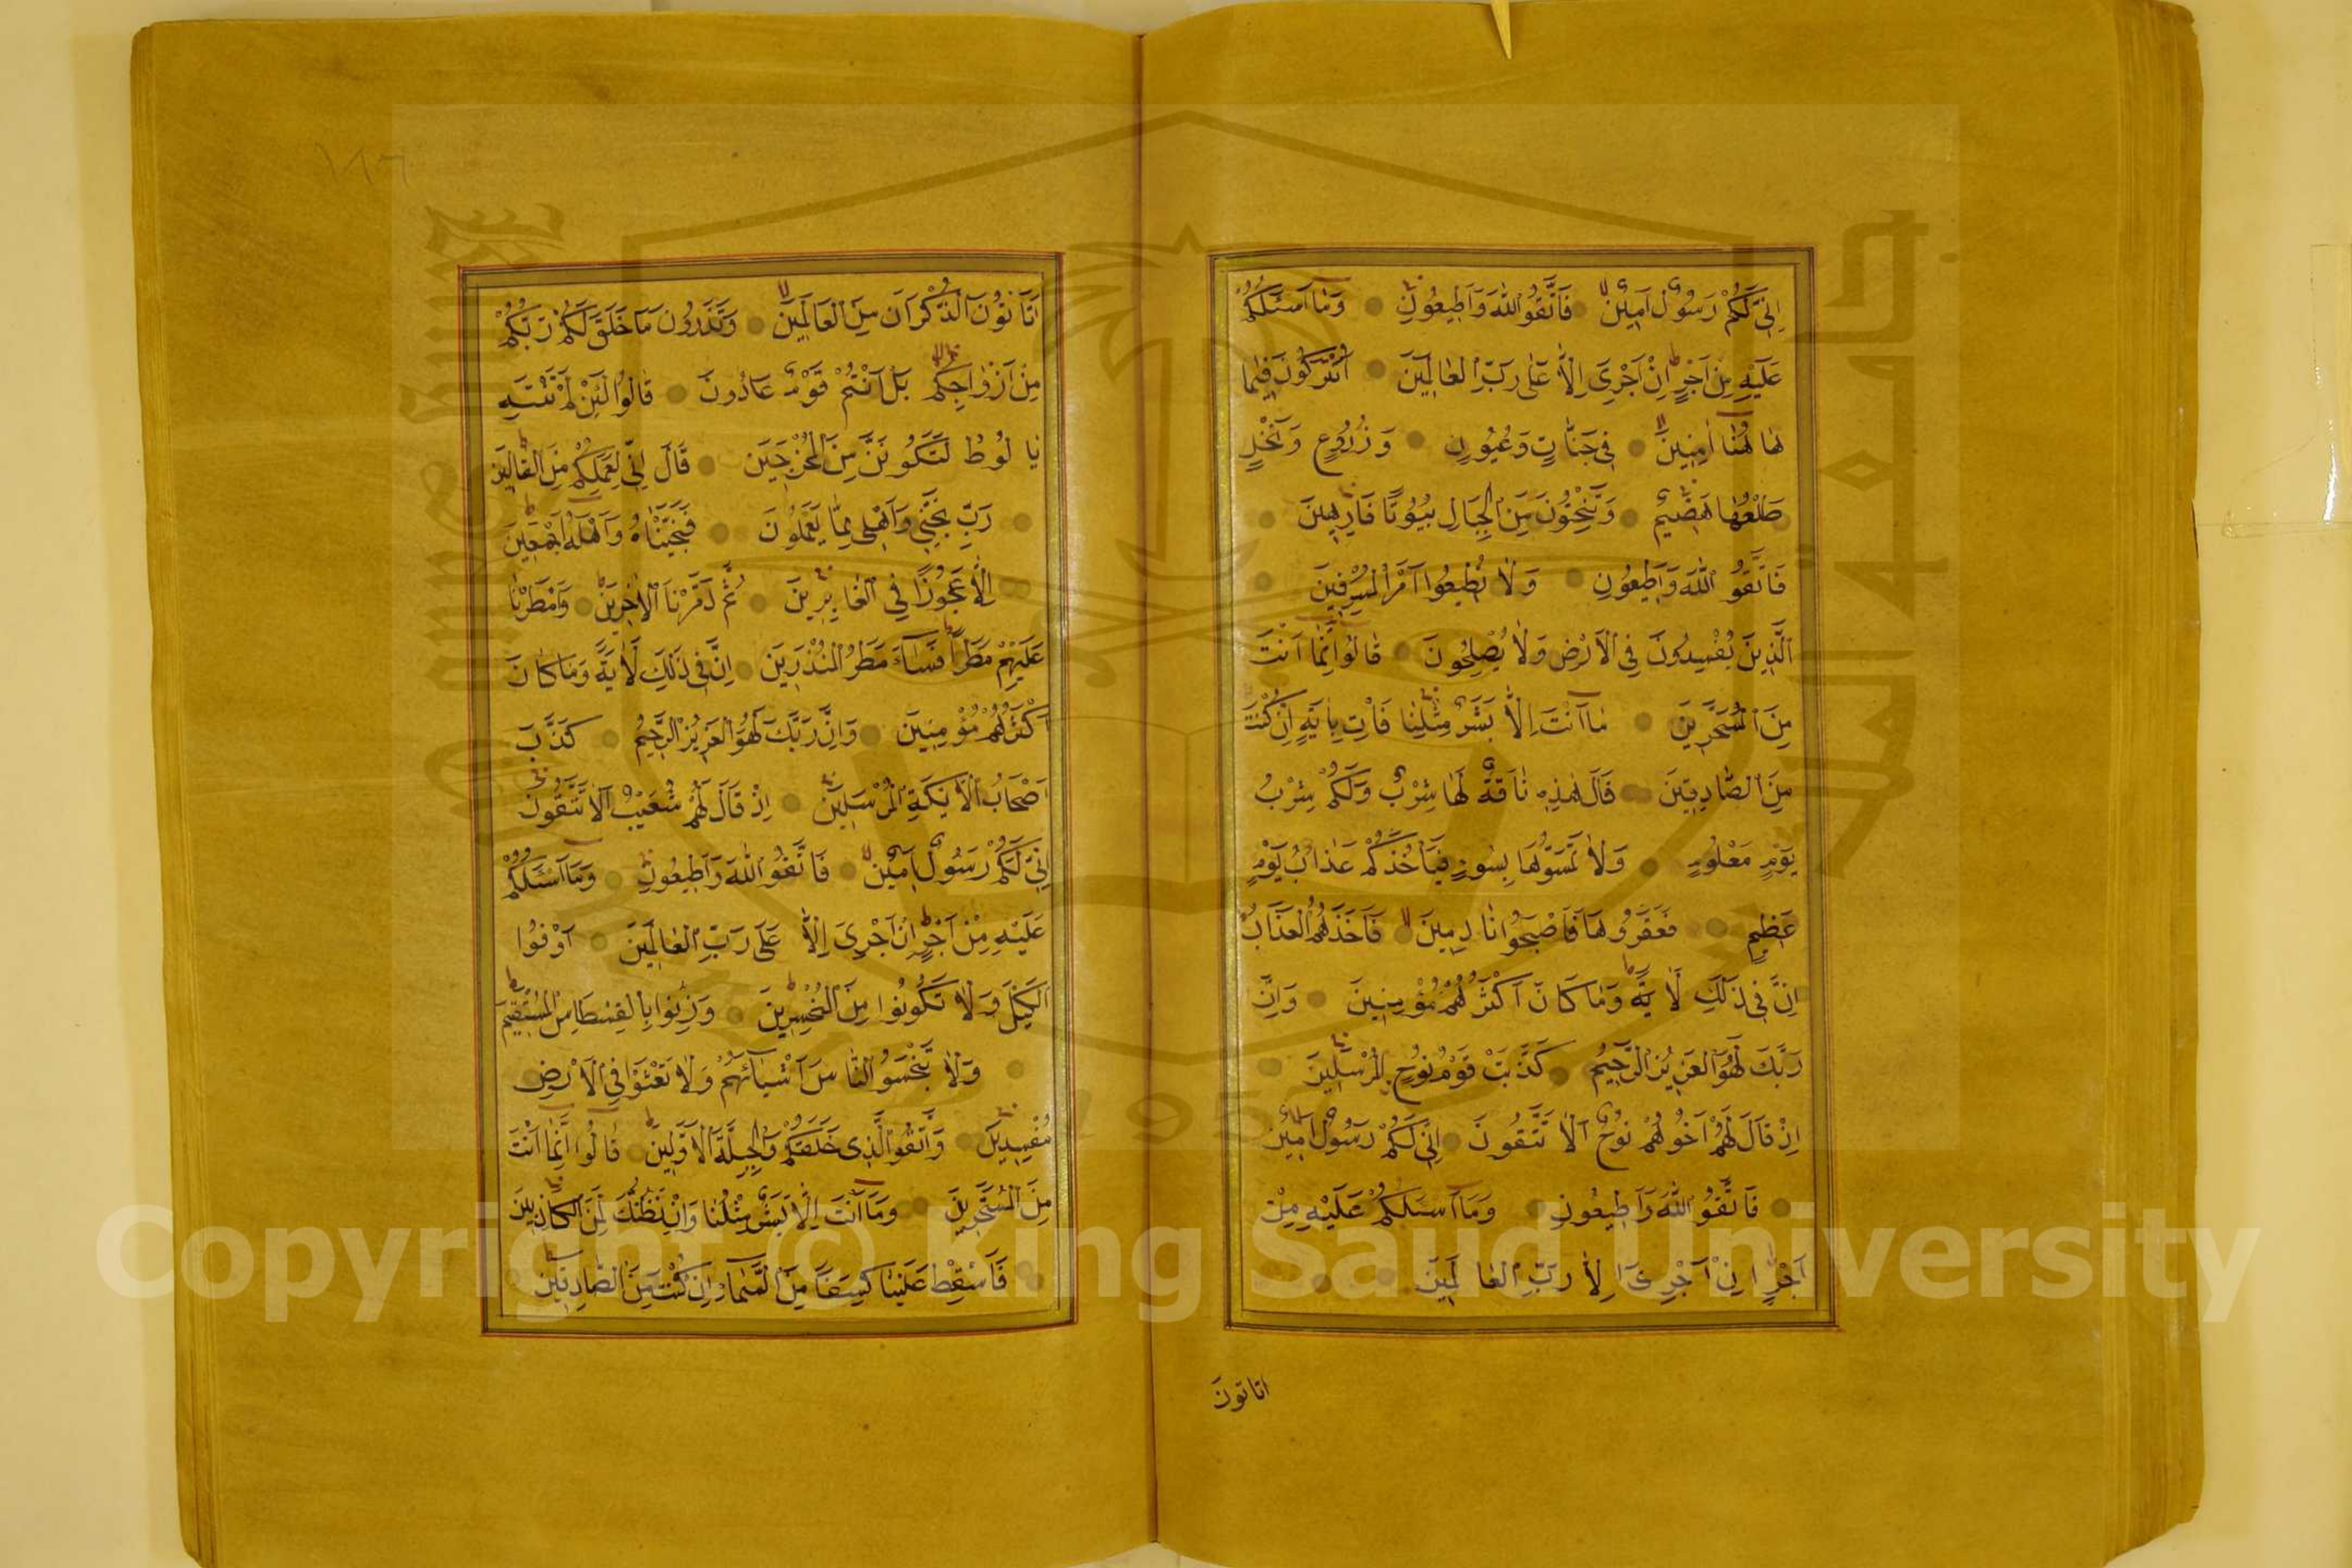 اِنّٖى لَكُمْ رَسُولٌ اَمٖينٌ فَاتَّقُوا اللّٰهَ وَاَطٖيعُونِ وَمَٓا اَسْـَٔلُكُمْ
عَلَيْهِ مِنْ اَجْرٍ اِنْ اَجْرِىَ اِلَّا عَلٰى رَبِّ الْعَالَمٖينَ اَتُتْرَكُونَ فٖيمَا
هَا هُنَٓا اٰمِنٖينَ فٖى جَنَّاتٍ وَعُيُونٍ وَزُرُوعٍ وَنَخْلٍ
طَلْعُهَا هَضٖيمٌ وَتَنْحِتُونَ مِنَ الْجِبَالِ بُيُوتًا فَارِهٖينَ
فَاتَّقُوا اللّٰهَ وَاَطٖيعُونِ وَلَا تُطٖيعُوا اَمْرَ الْمُسْرِفٖينَ
اَلَّذٖينَ يُفْسِدُونَ فِى الْاَرْضِ وَلَا يُصْلِحُونَ قَالُٓوا اِنَّمَٓا اَنْتَ
مِنَ الْمُسَحَّرٖينَ مَٓا اَنْتَ اِلَّا بَشَرٌ مِثْلُنَا فَاْتِ بِاٰيَةٍ اِنْ كُنْتَ
مِنَ الصَّادِقٖينَ قَالَ هٰذِهٖ نَاقَةٌ لَهَا شِرْبٌ وَلَكُمْ شِرْبُ
يَوْمٍ مَعْلُومٍ وَلَا تَمَسُّوهَا بِسُوءٍ فَيَاْخُذَكُمْ عَذَابُ يَوْمٍ
عَظٖيمٍ فَعَقَرُوهَا فَاَصْبَحُوا نَادِمٖينَ فَاَخَذَهُمُ الْعَذَابُ
اِنَّ فٖى ذٰلِكَ لَاٰيَةً وَمَا كَانَ اَكْثَرُهُمْ مُؤْمِنٖينَ وَاِنَّ
رَبَّكَ لَهُوَ الْعَزٖيزُ الرَّحٖيمُ كَذَّبَتْ قَوْمُ نُوحٍ الْمُرْسَلٖينَ
اِذْ قَالَ لَهُمْ اَخُوهُمْ نُوحٌ اَلَا تَتَّقُونَ اِنّٖى لَكُمْ رَسُولٌ اَمٖينٌ
فَاتَّقُوا اللّٰهَ وَاَطٖيعُونِ وَمَٓا اَسْـَٔلُكُمْ عَلَيْهِ مِنْ
اَجْرٍ اِنْ اَجْرِىَ اِلَّا رَبِّ الْعَالَمٖينَ
اتاتون
اَتَاْتُونَ الذُّكْرَانَ مِنَ الْعَالَمٖينَ وَتَذَرُونَ مَا خَلَقَ لَكُمْ رَبُّكُمْ
مِنْ اَزْوَاجِكُمْ بَلْ اَنْتُمْ قَوْمٌ عَادُونَ قَالُوا لَئِنْ لَمْ تَنْتَهِ
يَا لُوطُ لَتَكُونَنَّ مِنَ الْمُخْرَجٖينَ قَالَ اِنّٖى لِعَمَلِكُمْ مِنَ الْقَالٖينَ
رَبِّ نَجِّنٖى وَاَهْلٖى مِمَّا يَعْمَلُونَ فَنَجَّيْنَاهُ وَاَهْلَهُٓ اَجْمَعٖينَ
اِلَّا عَجُوزًا فِى الْغَابِرٖينَ ثُمَّ دَمَّرْنَا الْاٰخَرٖينَ وَاَمْطَرْنَا
عَلَيْهِمْ مَطَرًا فَسَٓاءَ مَطَرُ الْمُنْذَرٖينَ اِنَّ فٖى ذٰلِكَ لَاٰيَةً وَمَا كَانَ
اَكْثَرُهُمْ مُؤْمِنٖينَ وَاِنَّ رَبَّكَ لَهُوَ الْعَزٖيزُ الرَّحٖيمُ كَذَّبَ
اَصْحَابُ الْاَيْكَةِ الْمُرْسَلٖينَ اِذْ قَالَ لَهُمْ شُعَيْبٌ اَلَا تَتَّقُونَ
اِنّٖى لَكُمْ رَسُولٌ اَمٖينٌ فَاتَّقُوا اللّٰهَ وَاَطٖيعُونِ وَمَٓا اَسْـَٔلُكُمْ
عَلَيْهِ مِنْ اَجْرٍ اِنْ اَجْرِىَ اِلَّا عَلٰى رَبِّ الْعَالَمٖينَ اَوْفُوا
الْكَيْلَ وَلَا تَكُونُوا مِنَ الْمُخْسِرٖينَ وَزِنُوا بِالْقِسْطَاسِ الْمُسْتَقٖيمِ
وَلَا تَبْخَسُوا النَّاسَ اَشْيَٓاءَهُمْ وَلَا تَعْثَوْا فِى الْاَرْضِ
مُفْسِدٖينَ وَاتَّقُوا الَّذٖى خَلَقَكُمْ وَالْجِبِلَّةَ الْاَوَّلٖينَ قَالُٓوا اِنَّمَٓا اَنْتَ
مِنَ الْمُسَحَّرٖينَ وَمَٓا اَنْتَ اِلَّا بَشَرٌ مِثْلُنَا وَاِنْ نَظُنُّكَ لَمِنَ الْكَاذِبٖينَ
فَاَسْقِطْ عَلَيْنَا كِسَفًا مِنَ السَّمَٓاءِ اِنْ كُنْتَ مِنَ الصَّادِقٖينَ
١٨٦
Copyright © King Saud University
جامعة الملك سعود
King Saud University
1957